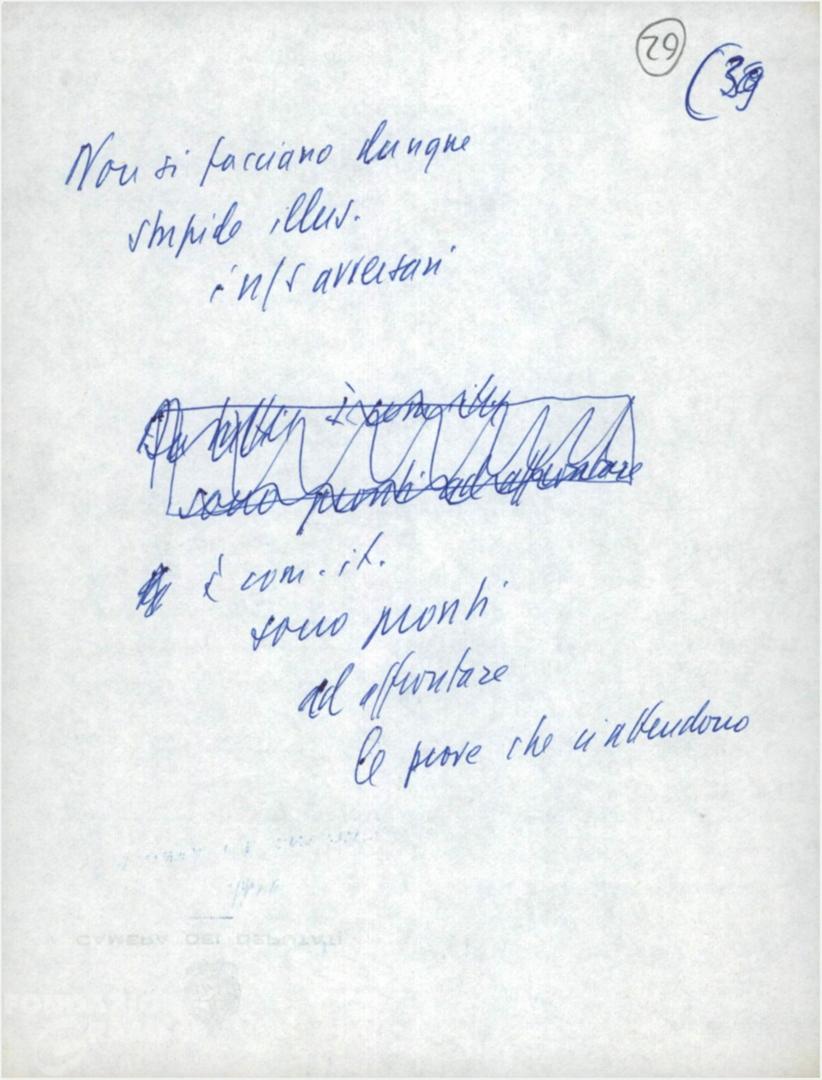 29
(39
Non si facciano dunque
stupide illus.
i n/s avversari
sono pronti ad affrontare
i com. it.
sono pronti
ad affrontare
le prove che ci attendono
CAMERA DEI DEPUTATI